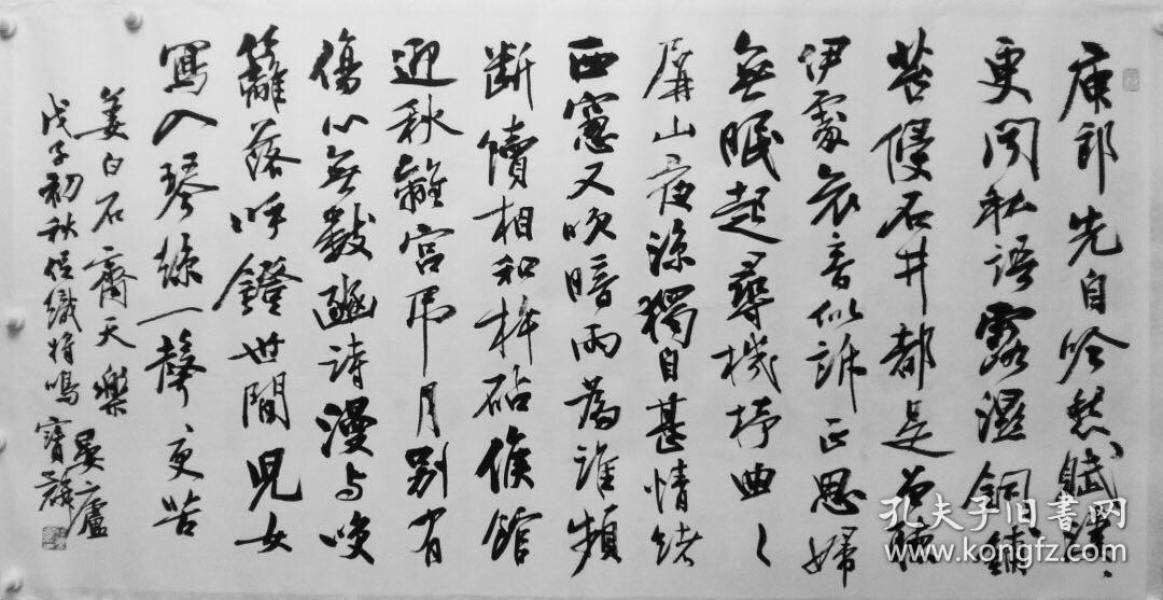 庾郎先自吟愁賦淒〻
更聞私語露濕銅鋪
苔侵石井都是曾聽
伊處哀音似訴正思婦
無眠起尋機杼曲〻
屏山夜涼獨自甚情緒
西窗又吹暗雨為誰頻
斷續相和杵砧候館
迎秋離宮弔月別有
傷心無數豳詩漫与咲
籬落呼鐙世間兒女
寫入琴絲一聲〻更苦
姜白石齊天樂
戊子初秋促織將鳴
廬
寶
孔夫子旧书网
www.kongfz.com